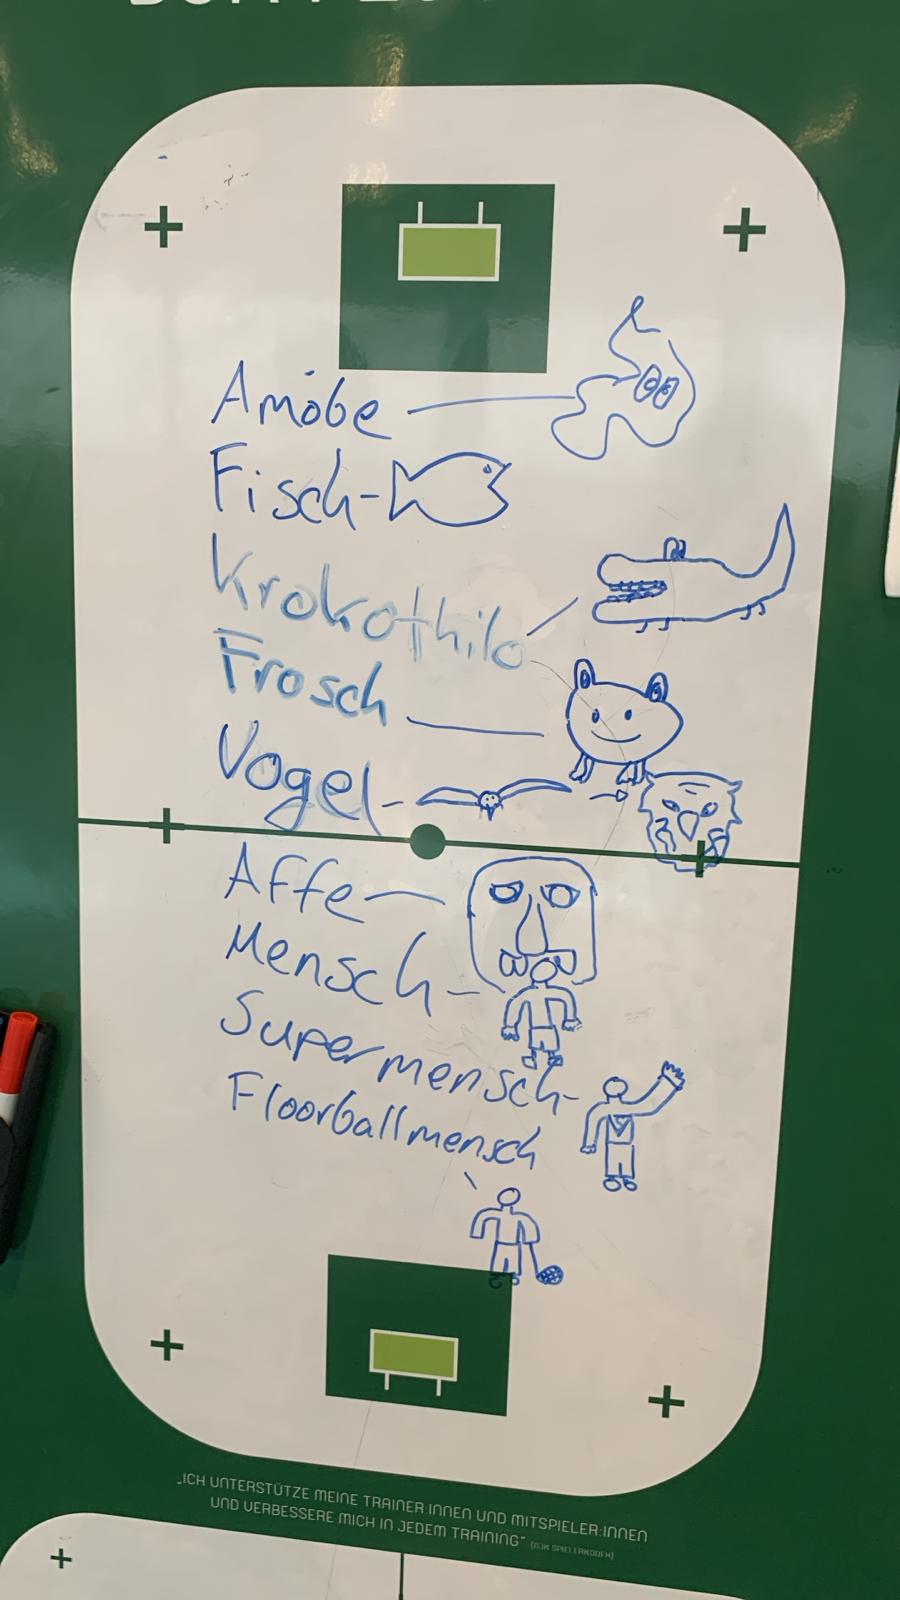 Amöbe
Fisch-
Krokothilo
Frosch
Vogel-
Affe
Mensch-
Supermensch-
Floorballmensch
„ICH UNTERSTÜTZE MEINE TRAINER:INNEN UND MITSPIELER:INNEN
UND VERBESSERE MICH IN JEDEM TRAINING“ (DJK SPIELERKODEX)